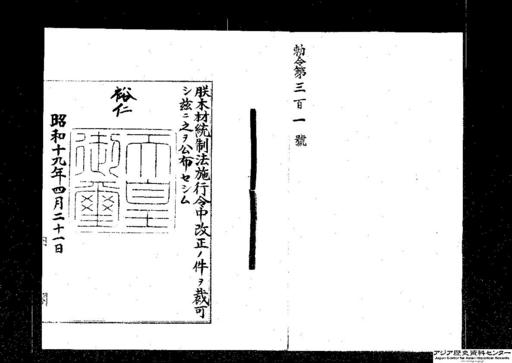 勅令第三百一號
朕木材統制法施行令中改正ノ件ヲ裁可
シ茲ニ之ヲ公布セシム
裕仁
天皇御璽
昭和十九年四月二十一日
アジア歴史資料センター
Japan Center for Asian Historical Records